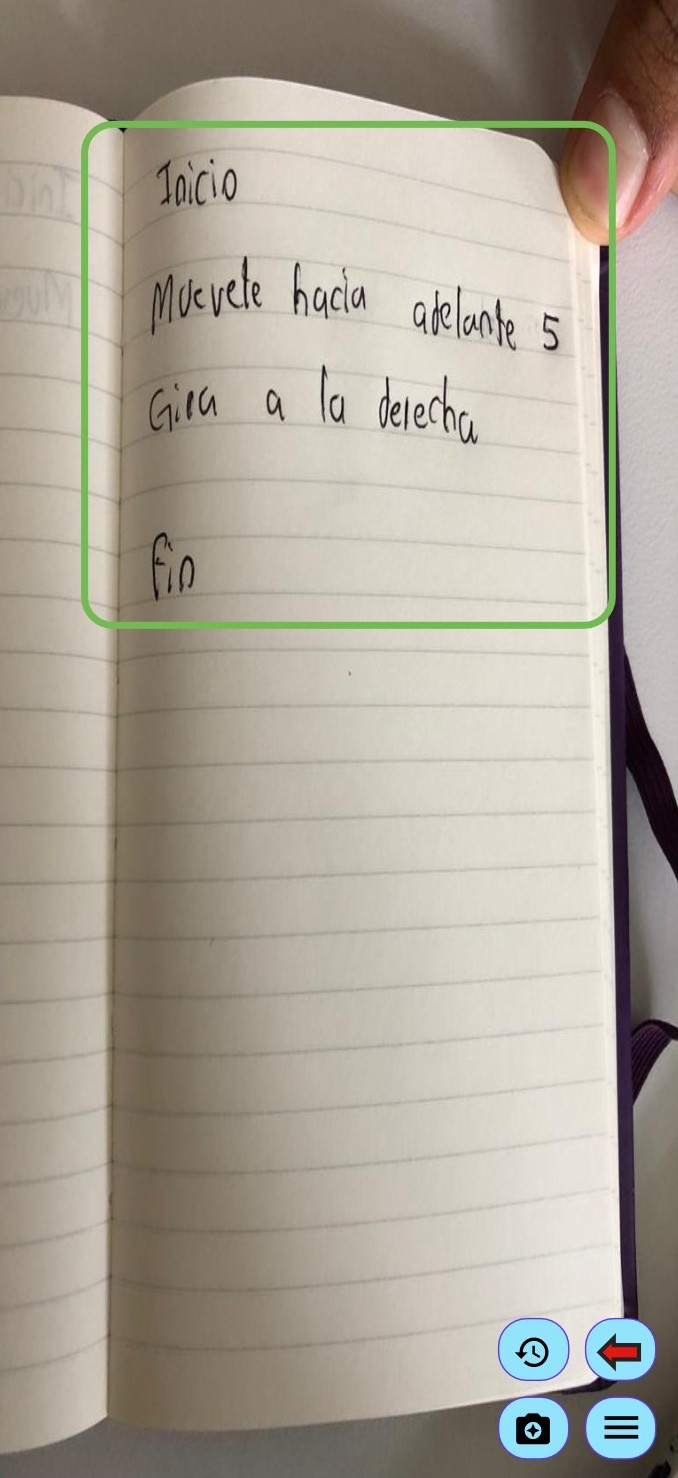 Inicio
Muevete hacia adelante 5
Gira a la derecha
Fin